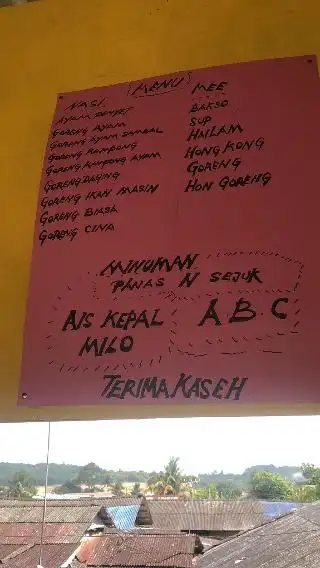 MENU
NASI.
AYAM PENYET
GORENG AYAM
GORENG AYAM SAMBAL
GORENG KAMPONG
GORENG KAMPONG AYAM
GORENG DAGING
GORENG IKAN MASIN
GORENG BIASA
GORENG CINA
MEE
BAKSO
SUP
HAILAM
HONG KONG
GORENG
HON GORENG
MINUMAN
PANAS N SEJUK
AIS KEPAL
MILO
A B C
TERIMA KASEH